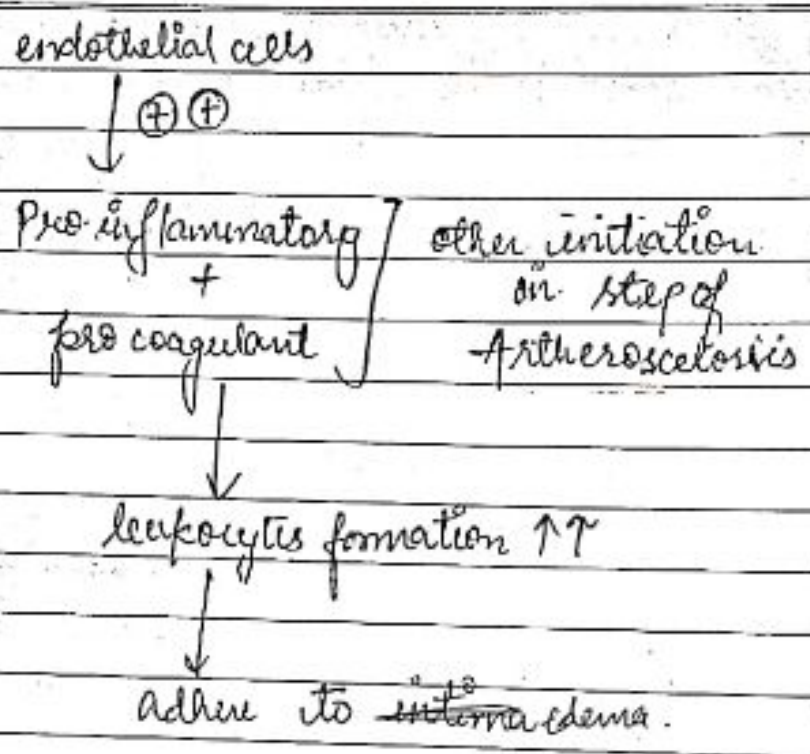 endothelial cells
↓ ⊕ ⊕
Pro-inflammatory
+
pro coagulant
other initiation
in step of
Artheroscelorsis
↓
leukocytes formation ↑↑
↓
adhere to interna edema.